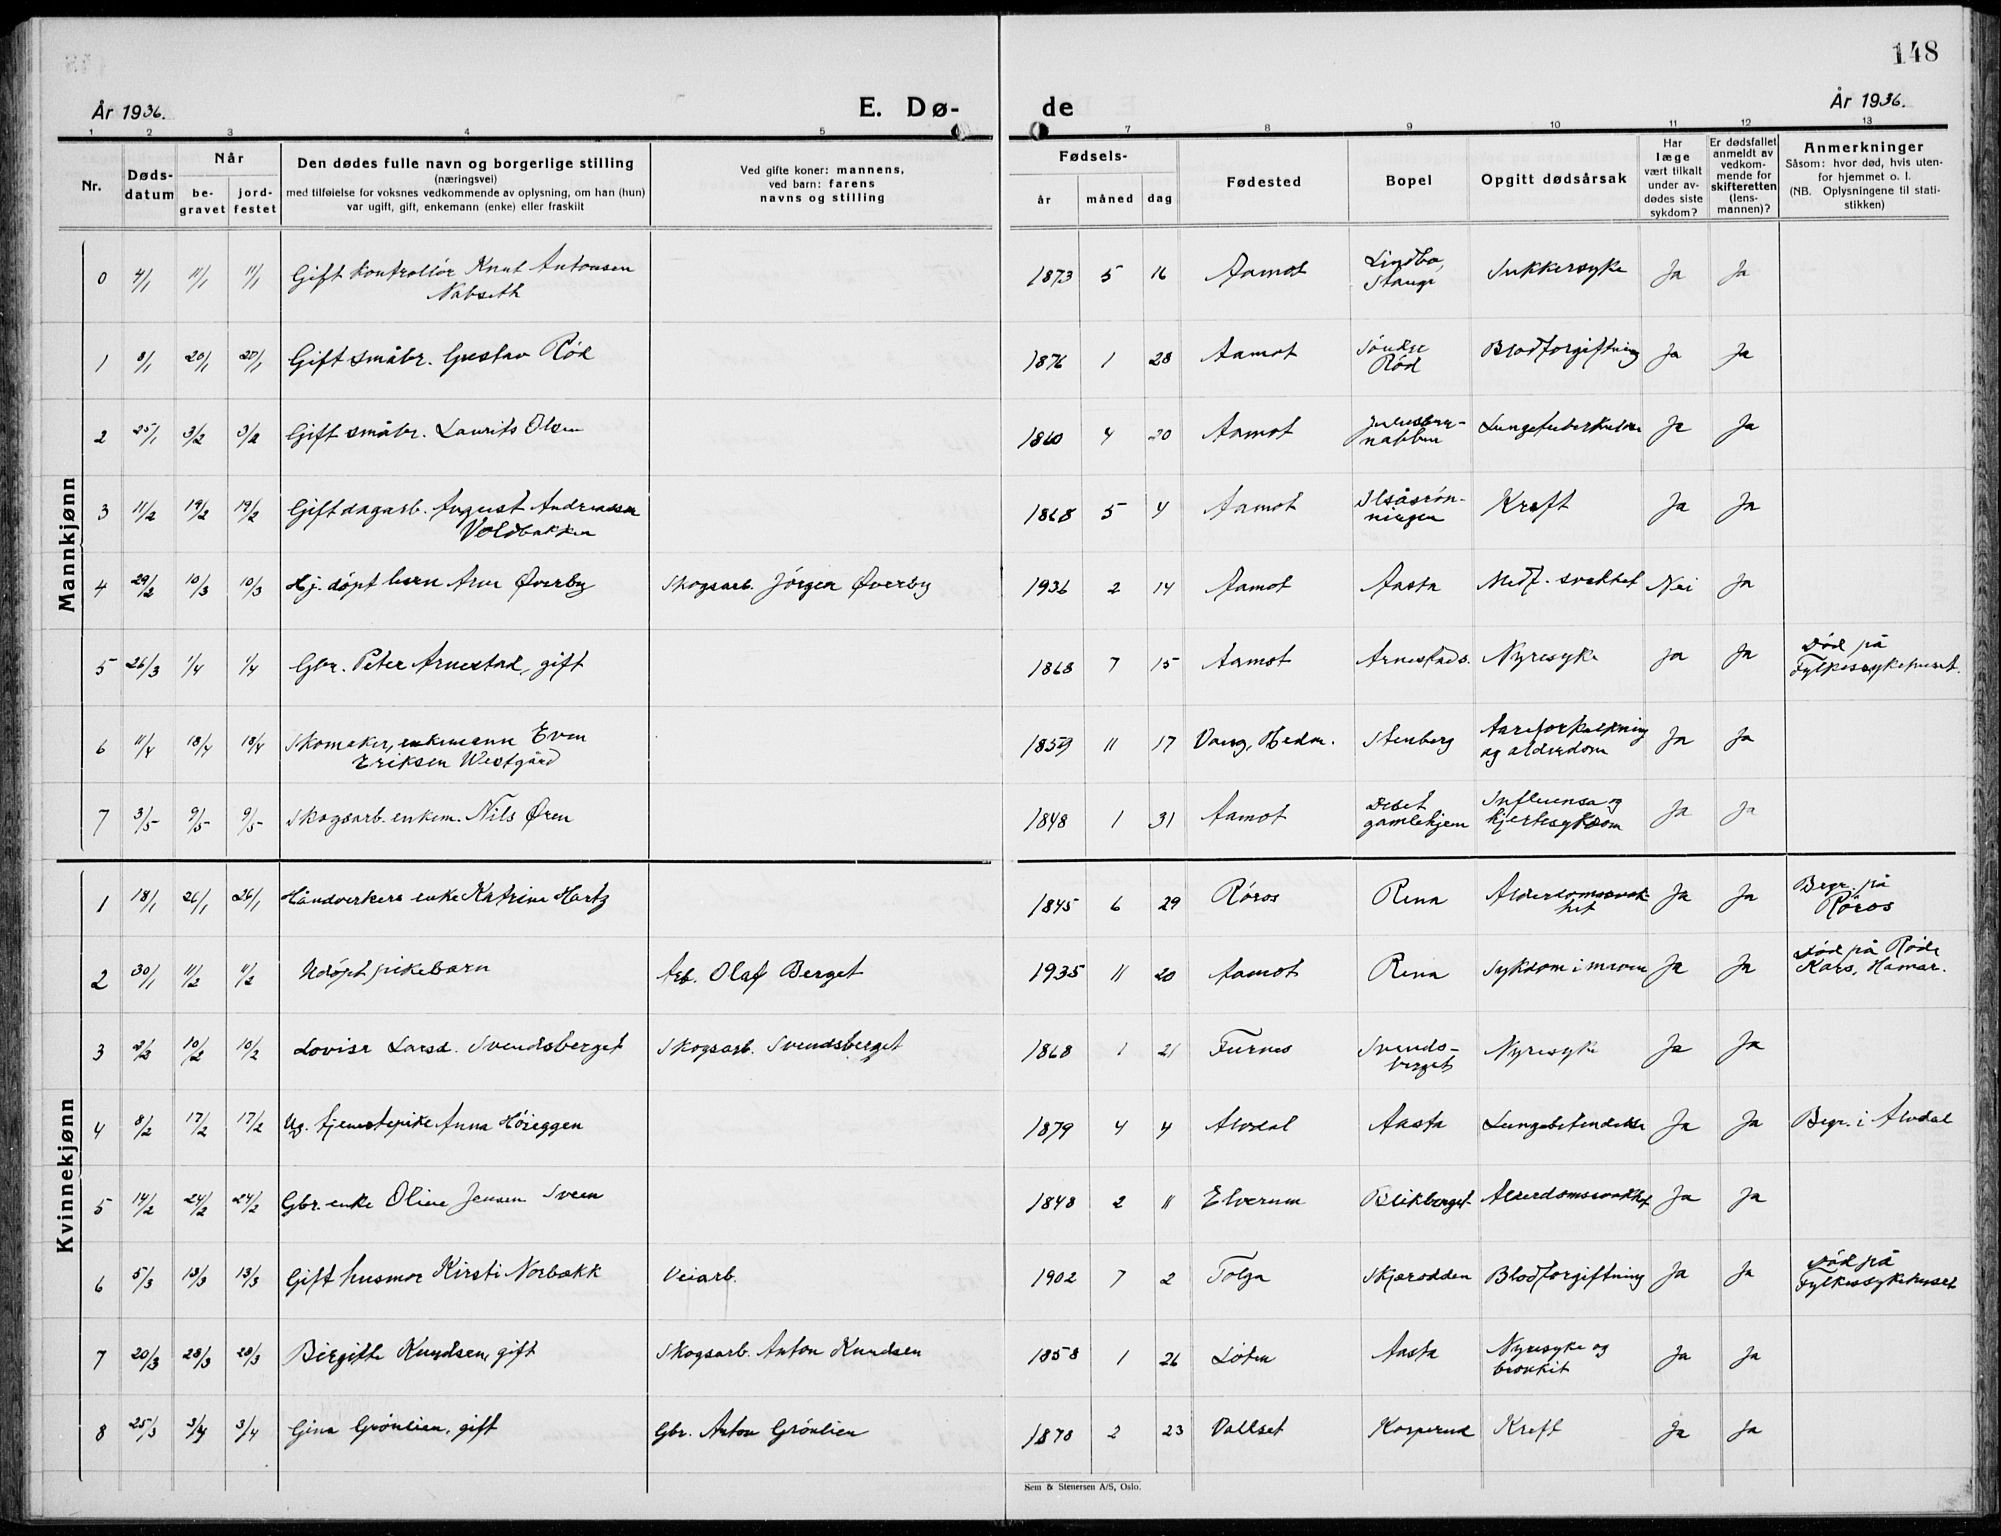 148
År 1936.
E. Dø-
de
År 1936.
1 2 3 4 5 7 8 9 10 11 12 13
Nr.
Døds-
datum
Når
be-
gravet
jord-
festet
Den dødes fulle navn og borgerlige stilling
(næringsvei)
med tilføielse for voksnes vedkommende av oplysning, om han (hun)
var ugift, gift, enkemann (enke) eller fraskilt
Ved gifte koner: mannens,
ved barn: farens
navns og stilling
Fødsels-
år måned dag
Fødested
Bopel
Opgitt dødsårsak
Har
læge
vært tilkalt
under av-
dødes siste
sykdom?
Er dødsfallet
anmeldt av
vedkom-
mende for
skifteretten
(lens-
mannen)?
Anmerkninger
Såsom: hvor død, hvis uten-
for hjemmet o. l.
(NB. Oplysningene til stati-
stikken)
Mannkjønn
0 4/1 11/1 11/1 Gift kontrollör Knut Antonsen
Nabseth
1873 5 16 Aamot Lindbo,
Stange
Sukkersyke Ja Ja
1 8/1 20/1 20/1 Gift småbr. Gustav Rød 1876 1 28 Aamot
Rød
Blodforgiftning Ja Ja
2 25/1 3/2 3/2 Gift småbr. Laurits Olsen 1860 4 20 Aamot
nabben
Lungetuberkulose Ja Ja
3 11/2 19/2 19/2 Gift dagarb. August Andreassen
Voldbakken
1868 5 4 Aamot Ilsåsrøn-
ningen
Kreft Ja Ja
4 29/2 10/3 10/3 Hj. döpt barn Arne Øverby Skogsarb. Jörgen Øverby 1936 2 14 Aamot Aasta Medf. svakhet Nei Ja
5 26/3 1/4 1/4 Gbr. Peter Arnestad, gift 1868 7 15 Aamot Arnestad s. Nyresyke Ja Ja Död på
Fylkessykehuset.
6 11/4 18/4 18/4 Skomaker, enkemann Even
Eriksen Westgård
1859 11 17 Vang, Hedm. Stenberg Aareforkalkning
og alderdom
Ja Ja
7 3/5 9/5 9/5 Skogsarb. enkem. Nils Øren 1848 1 31 Aamot Deset
gamlehjem
Influensa og
hjertesykdom
Ja Ja
Kvinnekjønn
1 18/1 26/1 26/1 Håndverkers enke Katrine Hartz 1845 6 29 Röros Rena Alderdomssvak-
het
Ja Ja Begr. på
Röros
2 30/1 11/2 11/2 Udöpt pikebarn Arb. Olaf Berget 1935 11 20 Aamot Rena Sykdom i maven Ja Ja Död på Röde
Kors, Hamar.
3 2/2 10/2 10/2 Lovise Larsd. Svendsberget Skogsarb. Svendsberget 1868 1 21 Furnes Svends-
berget
Nyresyke Ja Ja
4 8/2 17/2 17/2 Ug. tjenestepike Anna Höieggen 1879 4 4 Alvdal Aasta Lungebetendelse Ja Ja Begr. i Alvdal
5 14/2 24/2 24/2 Gbr. enke Oline Jensen Sveen 1848 2 11 Elverum Blikberget Alderdomssvakhet Ja Ja
6 5/3 13/3 13/3 Gift husmor Kirsti Norbækk Veiarb. 1902 7 2 Tolga Skjærodden Blodforgiftning Ja Ja Död på
Fylkessykehuset
7 20/3 28/3 28/3 Birgitte Knudsen, gift Skogsarb. Anton Knudsen 1858 1 26 Löten Aasta Nyresyke og
bronkit
Ja Ja
8 25/3 3/4 3/4 Gina Grönlien, gift Gbr. Anton Grönlien 1870 2 23 Vallset Kasperud Kreft Ja Ja
Sem & Stenersen A/S, Oslo.